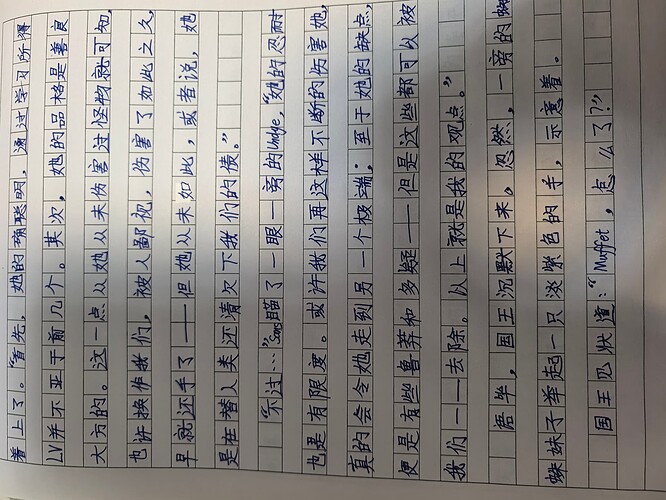 着上了。“首先，她的确聪明，通过学习所得
LV并不亚于前几个。其次，她的品格是善良
大方的。这一点从她从未伤害过怪物就可知，
也许换作我们，被人鄙视，伤害了如此之久，
早就还手了——但她从未如此，或者说，她
是在替人类还清欠下我们的债。”
“不过…”Sans瞄了一眼一旁的Undye，“她的忍耐
也是有限度。或许我们再这样不断的伤害她，
真的会令她走到另一个极端；至于她的缺点，
便是有些鲁莽和多疑——但是这些都可以被
我们一一去除。以上就是我的观点。”
语毕，国王沉默下来。忽然，一旁的蜘
蛛妹子举起一只淡紫色的手，示意着。
国王见状道：“Muffet，怎么了？”